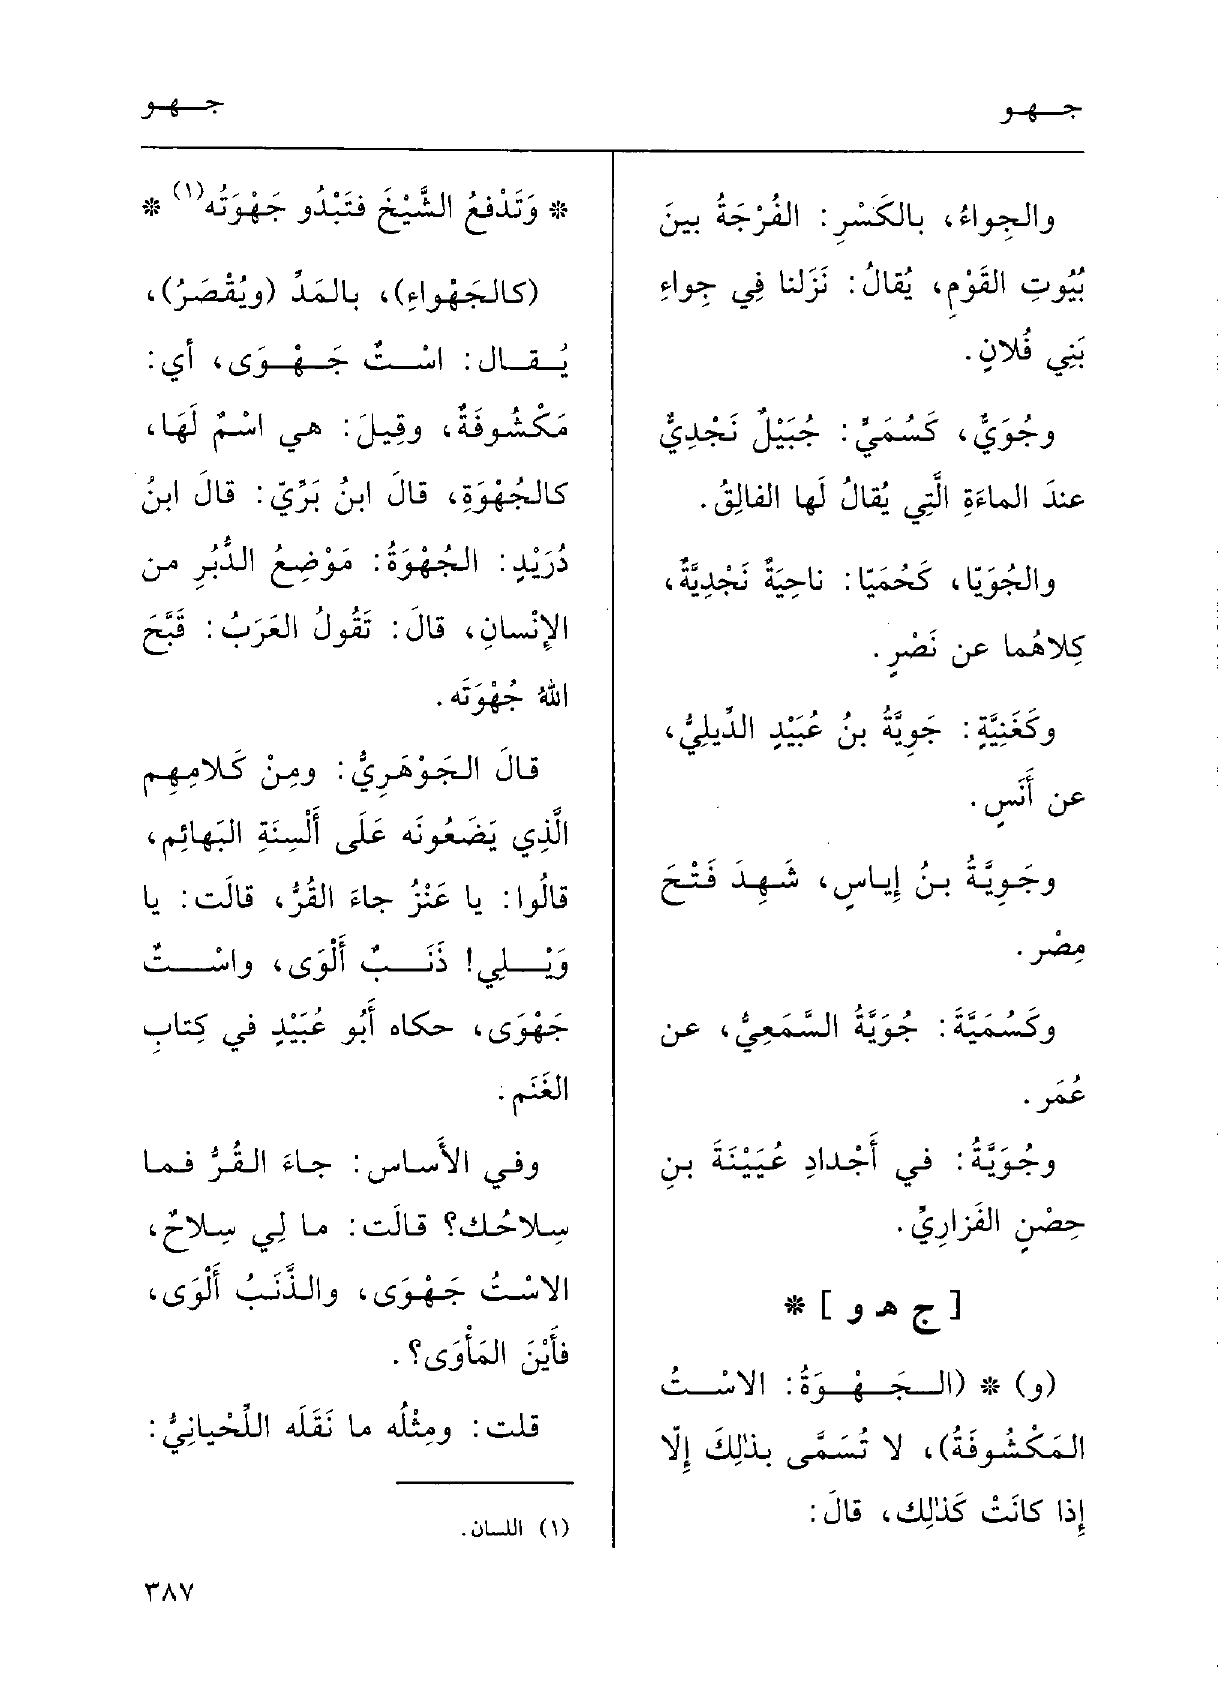 جـهـو
جـهـو
والجِواءُ، بالكَسْرِ: الفُرْجَةُ بينَ
بُيُوتِ القَوْمِ، يُقالُ: نَزَلنا فِي جِواءِ
بَنِي فُلانٍ.
وجُوَيٌّ، كَسُمَيٍّ: جُبَيْلٌ نَجْدِيٌّ
عندَ الماءَةِ الَّتِي يُقالُ لَها الفالِقُ.
والجُوَيّا، كَحُمَيّا: ناحِيَةٌ نَجْدِيَّةٌ،
كِلاهُما عن نَصْرٍ.
وكَغَنِيَّةٍ: جَوِيَّةُ بنُ عُبَيْدٍ الدِّيلِيُّ،
عن أَنَسٍ.
وجَوِيَّةُ بنُ إِياسٍ، شَهِدَ فَتْحَ
مِصْر.
وكَسُمَيَّةَ: جُوَيَّةُ السَّمَعِيُّ، عن
عُمَر.
وجُوَيَّةُ: في أَجْدادِ عُيَيْنَةَ بنِ
حِصْنٍ الفَزارِيِّ.
[ ج هـ و ] *
(و) * (الـجَـهْـوَةُ: الاسْـتُ
المَكْشُوفَةُ)، لا تُسَمَّى بذٰلِكَ إِلّا
إِذا كانَتْ كَذٰلِك، قالَ:
* وَتَدْفَعُ الشَّيْخَ فتَبْدُو جَهْوَتُه(١) *
(كالجَهْواءِ)، بالمَدِّ (ويُقْصَرُ)،
يُـقـال: اسْـتٌ جَـهْـوَى، أي:
مَكْشُوفَةٌ، وقِيلَ: هي اسْمٌ لَهَا،
كالجُهْوَةِ، قالَ ابنُ بَرِّيّ: قالَ ابنُ
دُرَيْدٍ: الجُهْوَةُ: مَوْضِعُ الدُّبُرِ من
الإِنْسانِ، قالَ: تَقُولُ العَرَبُ: قَبَّحَ
اللهُ جُهْوَتَه.
قالَ الجَوْهَرِيُّ: ومِنْ كَلامِهِم
الَّذِي يَضَعُونَه عَلَى أَلْسِنَةِ البَهائِمِ،
قالُوا: يا عَنْزُ جاءَ القُرُّ، قالَت: يا
وَيْـلِي! ذَنَـبٌ أَلْوَى، واسْـتٌ
جَهْوَى، حكاه أَبُو عُبَيْدٍ في كِتابِ
الغَنَمِ.
وفي الأَساس: جاءَ القُرُّ فما
سِلاحُك؟ قالَت: ما لِي سِلاحٌ،
الاسْتُ جَهْوَى، والذَّنَبُ أَلْوَى،
فأَيْنَ المَأْوَى؟.
قلت: ومِثْلُه ما نَقَلَه اللِّحْيانِيُّ:
(١) اللسان.
٣٨٧